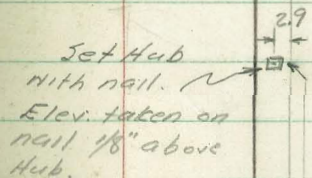 2.9
Set Hub
with nail.
Elev. taken on
nail 1/8" above
Hub.